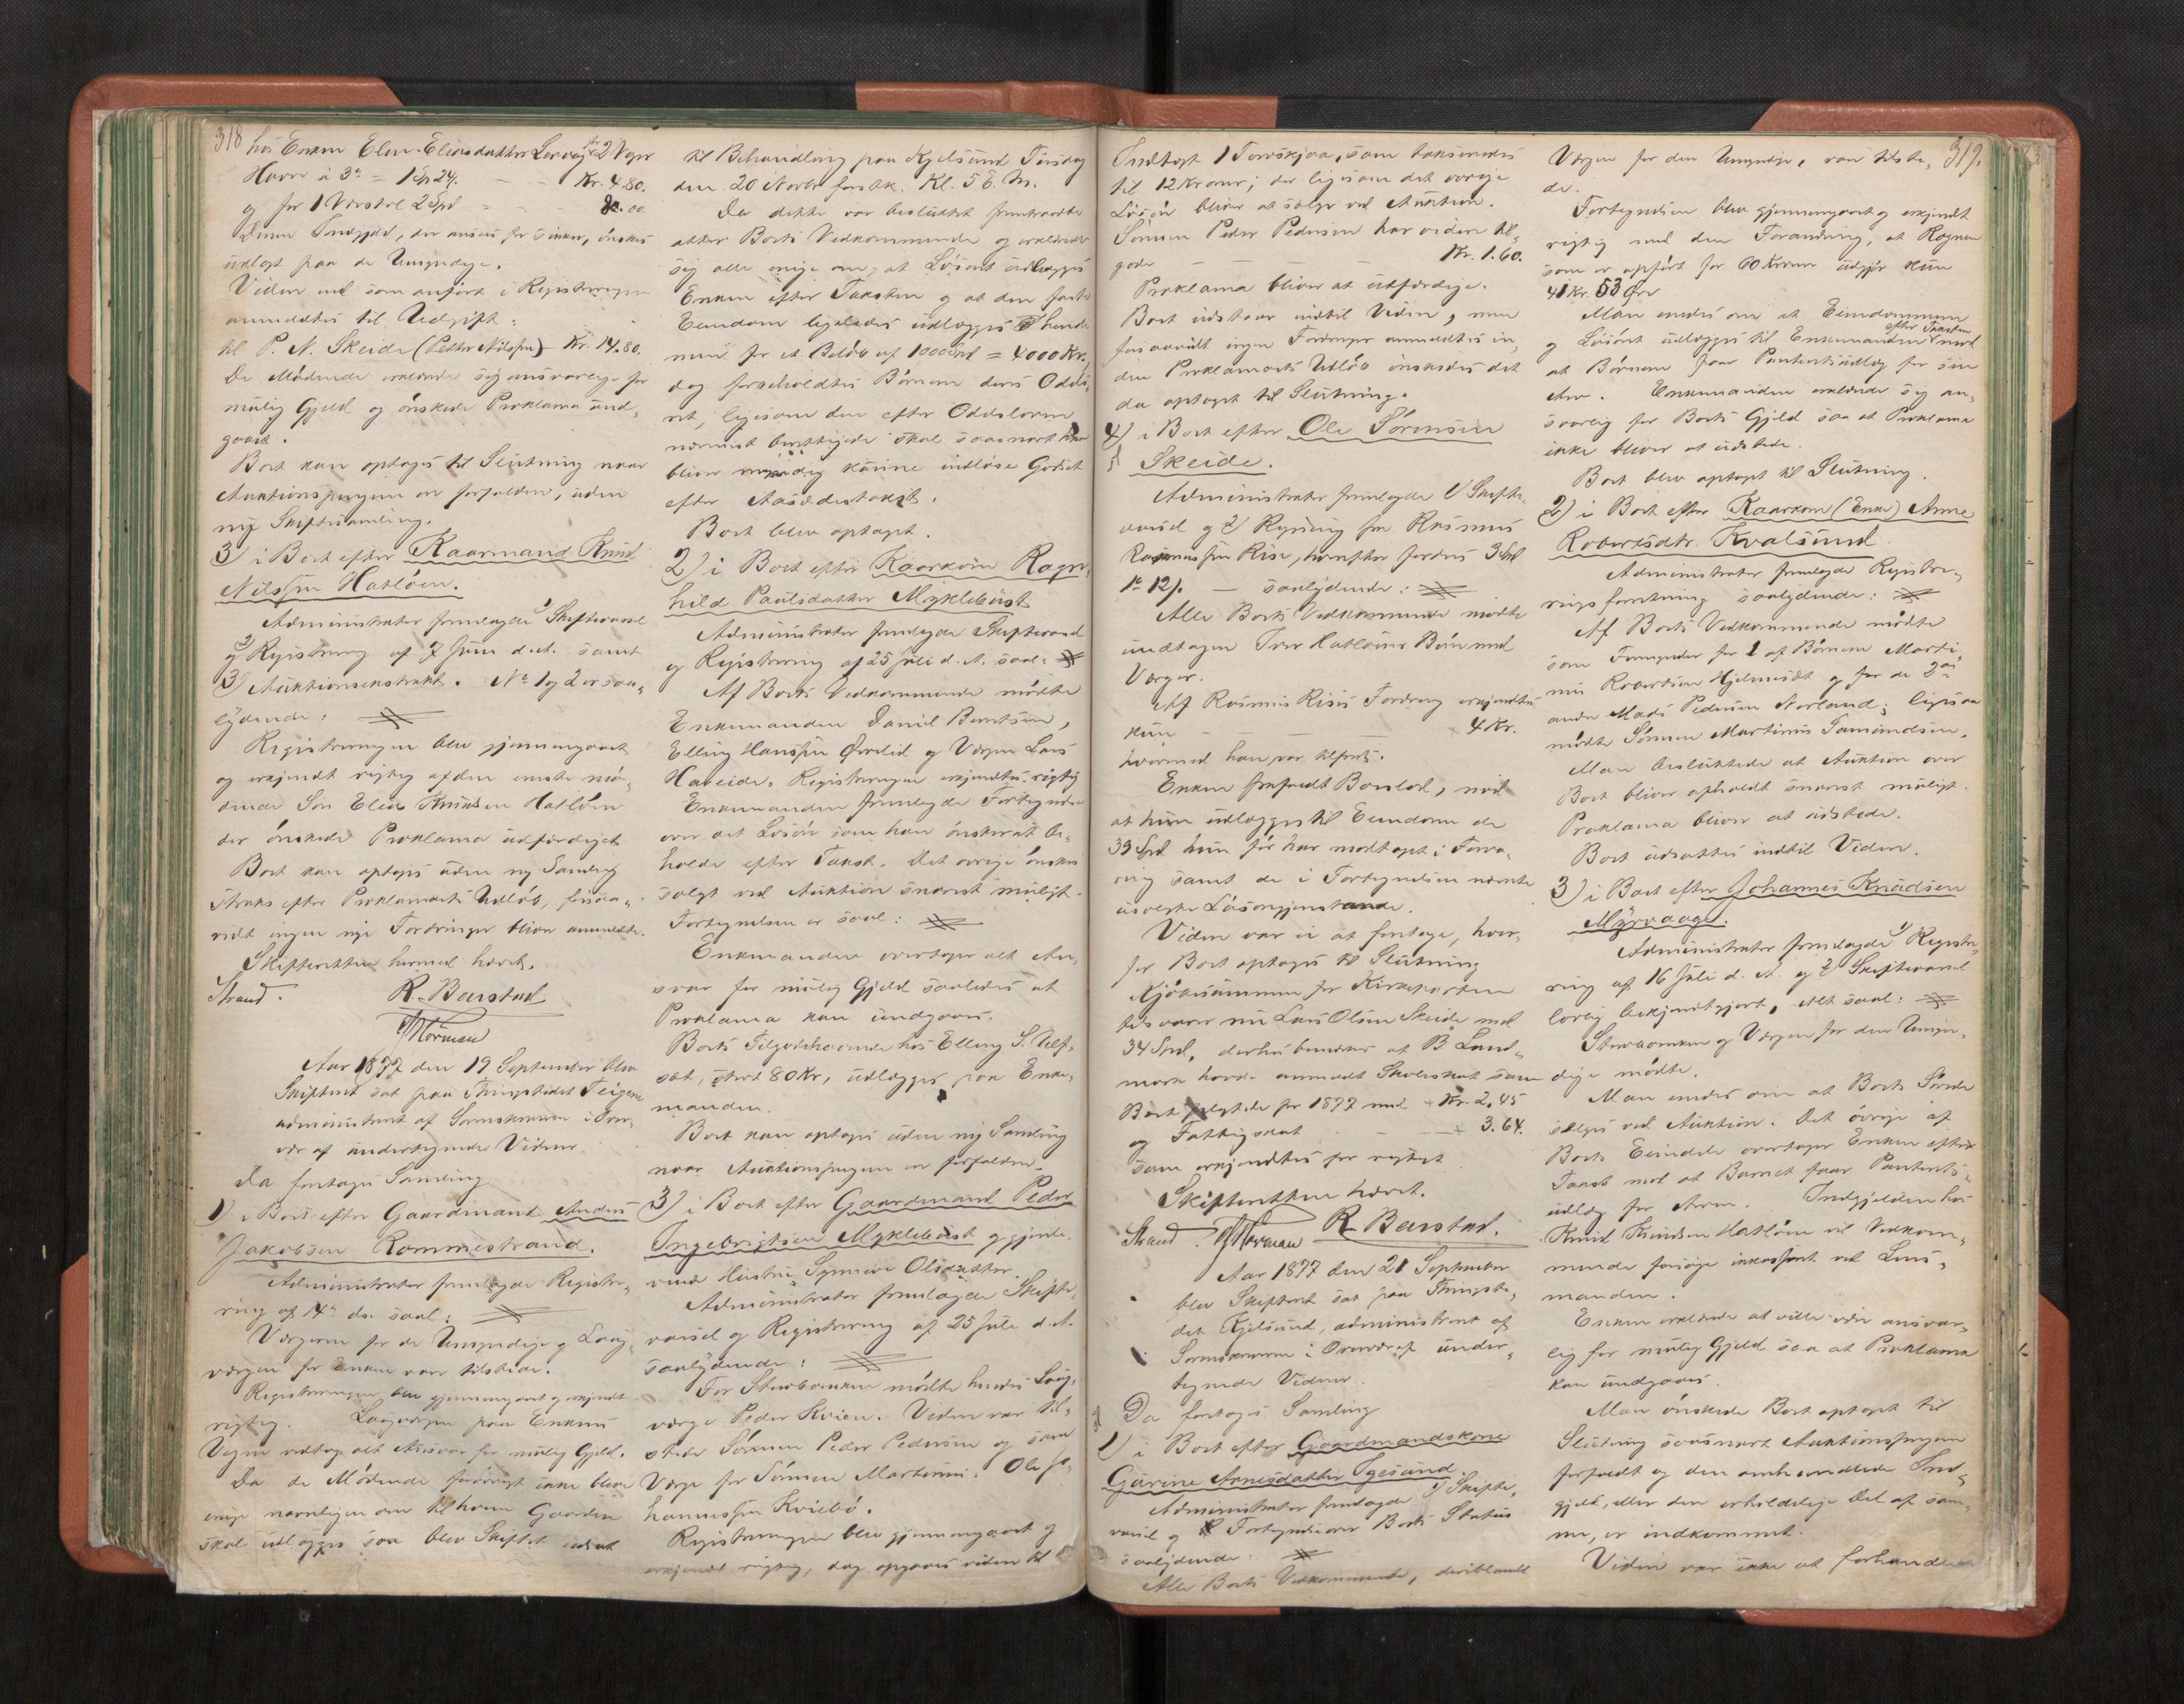 318
hos Enken Elen Eliasdatter Lervåg for 2 Voger
Havre à 3 = 1 Spd 24. - - Kr. 4.80.
og for 1 Vævstol 2 Spd - - - 8.00
Denne Indgjæld, der ansees for sikker, ønskes
udlagt paa de Umyndige.
Videre end som anført i Registreringen
anmeldtes til Udgift:
til P. N. Skeide (Petter Nilssen) - Kr. 14.80.
De Mødende erklærede sig ansvarlige for
mulig Gjeld og ønskede Proklama und-
gaaet.
Boet kan optages til Slutning naar
Auktionspengene er forfaldne, uden
ny Skiftesamling.
3) i Boet efter Kaarmand Knud
Nilssen Hatløen.
Administrator fremlagde 1) Skiftevarsel
2) Registrering af 7 Juni d.A. samt
3) Auktionsextrakt. No 1 og 2 er saa-
lydende:
Registreringen blev gjennemgaaet
og erkjendt rigtig af den eneste mø-
dende Søn Elias Knudsen Hatløen
der ønskede Proklama udfærdiget
Boet kan optages uden ny Samling
straks efter Proklamaets Udløb, forsaa-
vidt ingen nye Fordringer bliver anmeldte.
Skifteretten hermed hævet.
Strand. R. Barstad
Aar 1877 den 19 September blev
Skifteret sat paa Thingstedet Teigene
administreret af Sorenskriveren i Over-
vær af undertegnede Vidner.
Da foretoges Samling
1) i Boet efter Gaardmand Anders
Jakobsen Rommestrand.
Administrator fremlagde Registre-
ring af 14 ds. saal:
Værgerne for de Umyndige og Laug-
værgen for Enken vare tilstede.
Registreringen blev gjennemgaaet og erkjendt
rigtig. Laugværgen paa Enkens
Vegne vedtog alt Ansvar for mulig Gjeld.
Da de Mødende forøvrigt ikke bleve
enige navnligen om til hvem Gaarden
skal udlægges saa blev Skiftet udsat
til Behandling paa Kjelsund Tirsdag
den 20 Novbr førstk. Kl. 5 E. M.
Da dette var besluttet fremtraadte
atter Boets Vedkommende og erklærede
sig alle enige om, at Løsøret udlægges
Enken efter Taksten og at den faste
Eiendom ligeledes udlægges hende
men for et Beløb af 1000 Spd = 4000 Kr.
dog forbeholdtes Børnene deres Odels-
ret, ligesom den efter Odelsloven
nærmest berettigede skal saasnart han
bliver myndig kunne indløse Godset
efter Aasædestakst.
Boet blev optaget.
2) i Boet efter Kaarkone Ragn-
hild Paulsdatter Myklebust
Administrator fremlagde Skiftevarsel
og Registrering af 25 Juli d. A. saal:
Af Boets Vedkommende mødte
Enkemanden Daniel Berntsen,
Elling Hanssen Ørvelid og Værgen Lars
Hareide. Registreringen erkjendtes rigtig
Enkemanden fremlagde Fortegnelse
over det Løsøre som han ønsker at be-
holde efter Takst. Det øvrige ønskes
solgt ved Auktion snarest muligt.
Fortegnelsen er saal:
Enkemanden overtager alt An-
svar for mulig Gjeld saaledes at
Proklama kan undgaaes.
Boets Tilgodehavende hos Elling S.
80 Kr, udlægges paa Enke-
manden.
Boet kan optages uden ny Samling
naar Auktionspengene er forfaldne.
3) i Boet efter Gaardmand Peder
Ingebrigtsen Myklebust og gjenle-
vende Hustru Synneve Olsdatter.
Administrator fremlagde Skifte-
varsel og Registrering af 25 Juli d.A.
saalydende:
For Stervboenken mødte hendes Laug-
værge Peder Kvien. Videre var til-
stede Sønnen Peder Pedersen og som
Værge for Sønnen Martinus: Ole Jo-
hannessen Kviebø.
Registreringen blev gjennemgaaet og
erkjendt rigtig, dog opgaves videre til
319.
Indtægt 1 Torvskjaa, som taksertes
til 12 Kroner; der ligesom det øvrige
Løsøre bliver at sælge ved Auktion.
Sønnen Peder Pedersen har videre til-
gode - - - - Kr. 1.60.
Proklama bliver at udfærdige.
Boet udstaar indtil Videre, men
forsaavidt ingen Fordringer anmeldtes in-
den Proklamaets Udløb ønskedes det
da optaget til Slutning.
4) i Boet efter Ole Sørensen
Skeide.
Administrator fremlagde 1) Skifte-
varsel og 2) Regning fra Rasmus
Rasmussen Rise, hvorefter fordres 3 Spd
1 12 - saalydende:
Alle Boets Vedkommende mødte
undtagen Iver Hatløens Børn med
Værger.
Af Rasmus Rises Fordring erkjendtes
kun - - - 4 Kr.
hvormed han var tilfreds.
Enken frafaldt Boslod, mod
at hun udlægges til Eiendom de
33 Spd hun før har modtaget i Forva-
ring samt de i Fortegnelsen nævnte
usolgte Løsøregjenstande.
Videre var ei at foretage, hvor-
for Boet optages til Slutning
Kjøbesummen for Kirkeparten
tilsvarer nu Lars Olsen Skeide med
34 Spd, derhos bemærkes at B Land-
mark havde anmeldt Skoleskat som
Boet for 1877 med - Kr. 2.45
og Fattigskat - - - 3.64.
som erkjendtes for rigtigt
Skifteretten hævet.
Strand. R Barstad.
Aar 1877 den 21 September
blev Skifteret sat paa Thingste-
det Kjelsund, administreret af
Sorenskriveren i Overvær af under-
tegnede Vidner.
Da foretoges Samling
1) i Boet efter Gaardmandskone
Gurine Arnesdatter Igesund.
Administrator fremlagde 1) Skifte-
varsel og 2) Fortegnelse over Boets Status
saalydende:
Alle Boets Vedkommende, deriblandt
Værgen for den Umyndige, vare tilste-
de.
Fortegnelsen blev gjennemgaaet og erkjendt
rigtig med den Forandring, at Rognen
som er opført for 60 Kroner udgjør kun
41 Kr. 53 Øre
Man enedes om at Eiendommen
og Løsøret udlægges til Enkemanden efter Taksten mod
at Børnene faar Panterets Udlæg for sin
Arv. Enkemanden erklærede sig an-
svarlig for Boets Gjeld saa at Proklama
ikke bliver at udstede.
Boet blev optaget til Slutning.
2) i Boet efter Kaarkone (Enke) Anne
Robertsdtr. Kvalsund
Administrator fremlagde Registre-
ringsforretning saalydende:
Af Boets Vedkommende mødte
som Formynder for 1 af Børnene Marti-
nus Robertsen Hjelmeset og for de 2de
andre Mads Pedersen Nerland; ligesaa
mødte Sønnen Martinus Samundsen.
Man besluttede at Auktion over
Boet bliver afholdt snarest muligt.
Proklama bliver at udstede.
Boet udsattes indtil Videre.
3) i Boet efter Johannes Knudsen
Myrvaage.
Administrator fremlagde 1) Registre-
ring af 16 Juli d. A. og 2) Skiftevarsel
lovlig bekjendtgjort, Alt saal:
Stervboenken og Værgen for den Umyn-
dige mødte.
Man enedes om at Boets Løsøre
sælges ved Auktion. Det øvrige af
Boets Eiendele overtager Enken efter
Takst mod at Barnet faar Panterets-
udlæg for Arven. Indgjelden hos
Knud Knudsen Hatløen vil Vedkom-
mende forsøge inkasseret ved Lens-
manden.
Enken erklærede at ville være ansvar-
lig for mulig Gjeld saa at Proklama
kan undgaaes.
Man ønskede Boet optaget til
Slutning saasnart Auktionspengene
forfaldt og den omhandlede Ind-
gjeld, eller den erholdelige Del af sam-
me, er indkommet.
Videre var ikke at forhandle